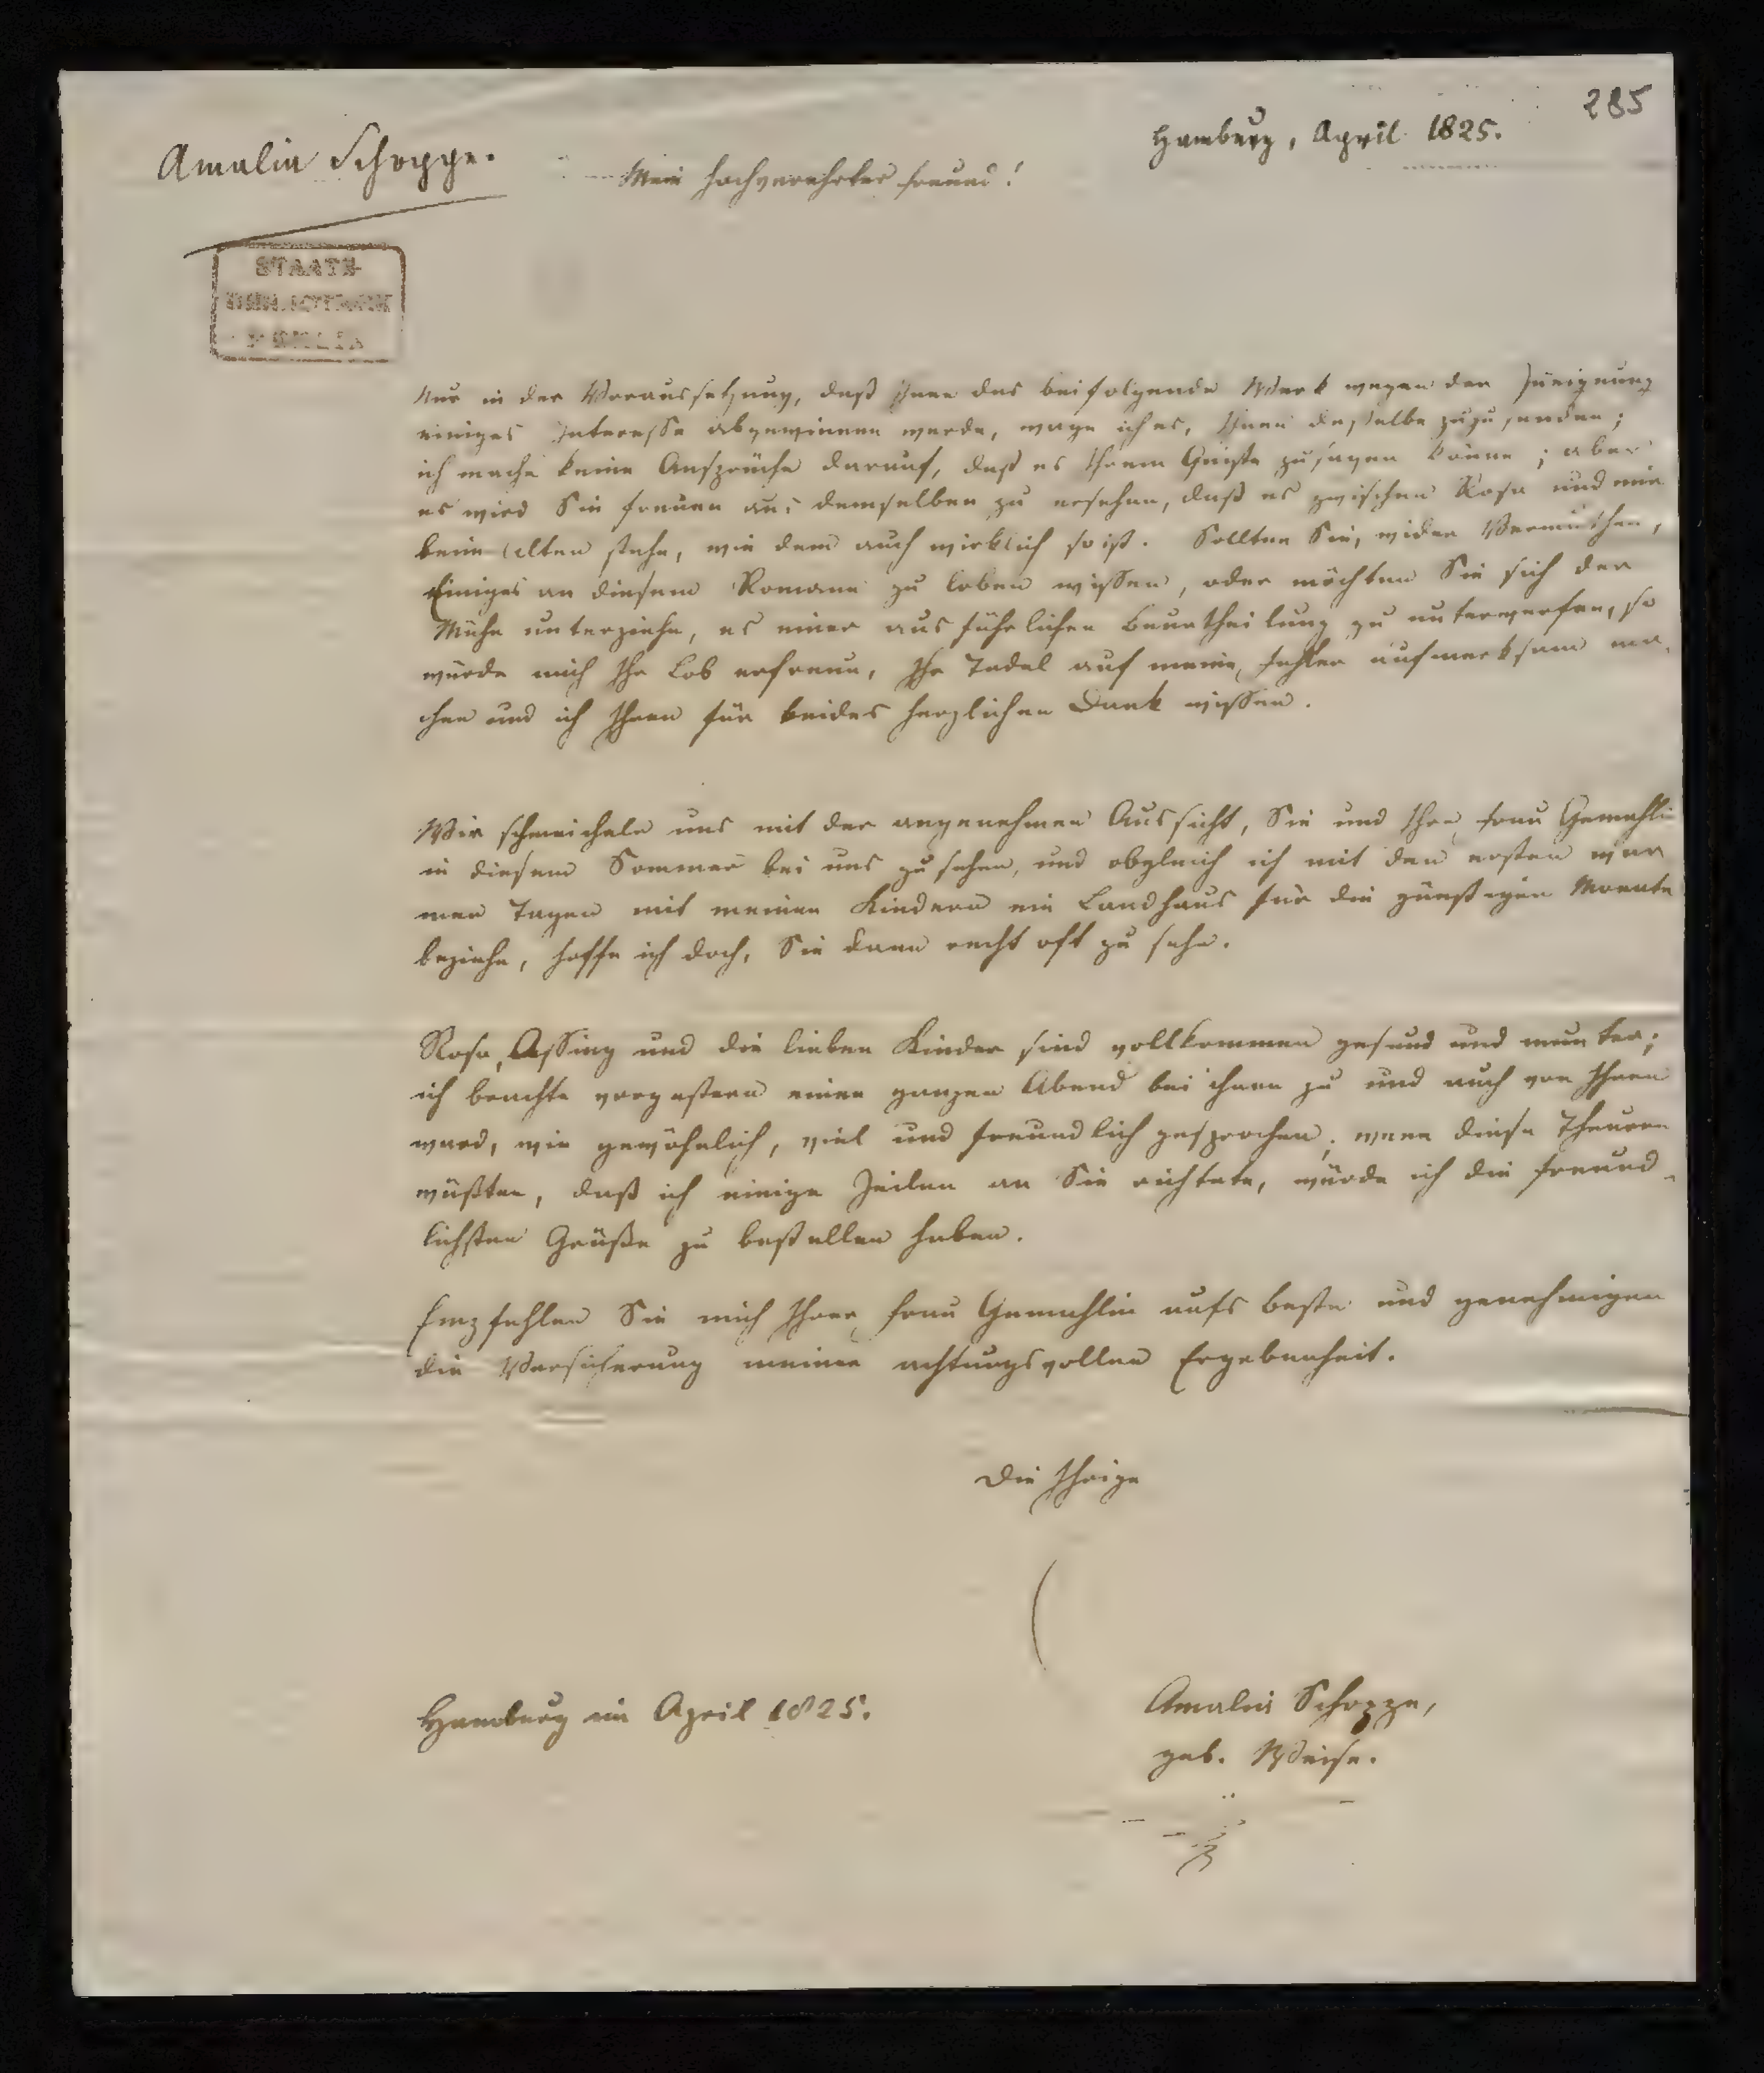 285
Hamburg, April 1825.
Amalia Schoppe.
Mein hochverehrter Freund!
STAATS-
BIBLIOTHEK
BERLIN
Nur in der Voraussetzung, daß Ihnen das beifolgende Werk wegen der Zueignung
einiges Interesse abgewinnen werde, wage ich es, Ihnen dasselbe zuzusenden;
ich mache keine Ansprüche darauf, daß es Ihrem Geiste zusagen könne; aber
es wird Sie freuen aus demselben zu ersehen, daß es zwischen Rosa und mir
beim Alten stehe, wie dem auch wirklich so ist. Sollten Sie, wider Vermuthen,
Einiges an diesem Romane zu loben wissen, oder möchten Sie sich der
Mühe unterziehn, es einer ausführlichen Beurtheilung zu unterwerfen, so
würde mich Ihr Lob erfreun, Ihr Tadel auf meine Fehler aufmerksam ma-
chen und ich Ihnen für beides herzlichen Dank wissen.
Wir schmeicheln uns mit der angenehmen Aussicht, Sie und Ihre Frau Gemahlin
in diesem Sommer bei uns zu sehen, und obgleich ich mit den ersten war
men Tagen mit meinen Kindern ein Landhaus für die günstigen Monate
beziehe, hoffe ich doch, Sie dann recht oft zu sehn.
Rosa, Assing und die lieben Kinder sind vollkommen gesund und munter;
ich brachte vorgestern einen ganzen Abend bei ihnen zu und auch von Ihnen
ward, wie gewöhnlich, viel und freundlich gesprochen; wenn diese Theuren
wüßten, daß ich einige Zeilen an Sie richtete, würde ich die freund-
lichsten Grüße zu bestellen haben.
Empfehlen Sie mich Ihrer Frau Gemahlin aufs beste und genehmigen
die Versicherung meiner achtungsvollen Ergebenheit.
Die Ihrige
Amalia Schoppe,
geb. Weise.
Hamburg im April 1825.